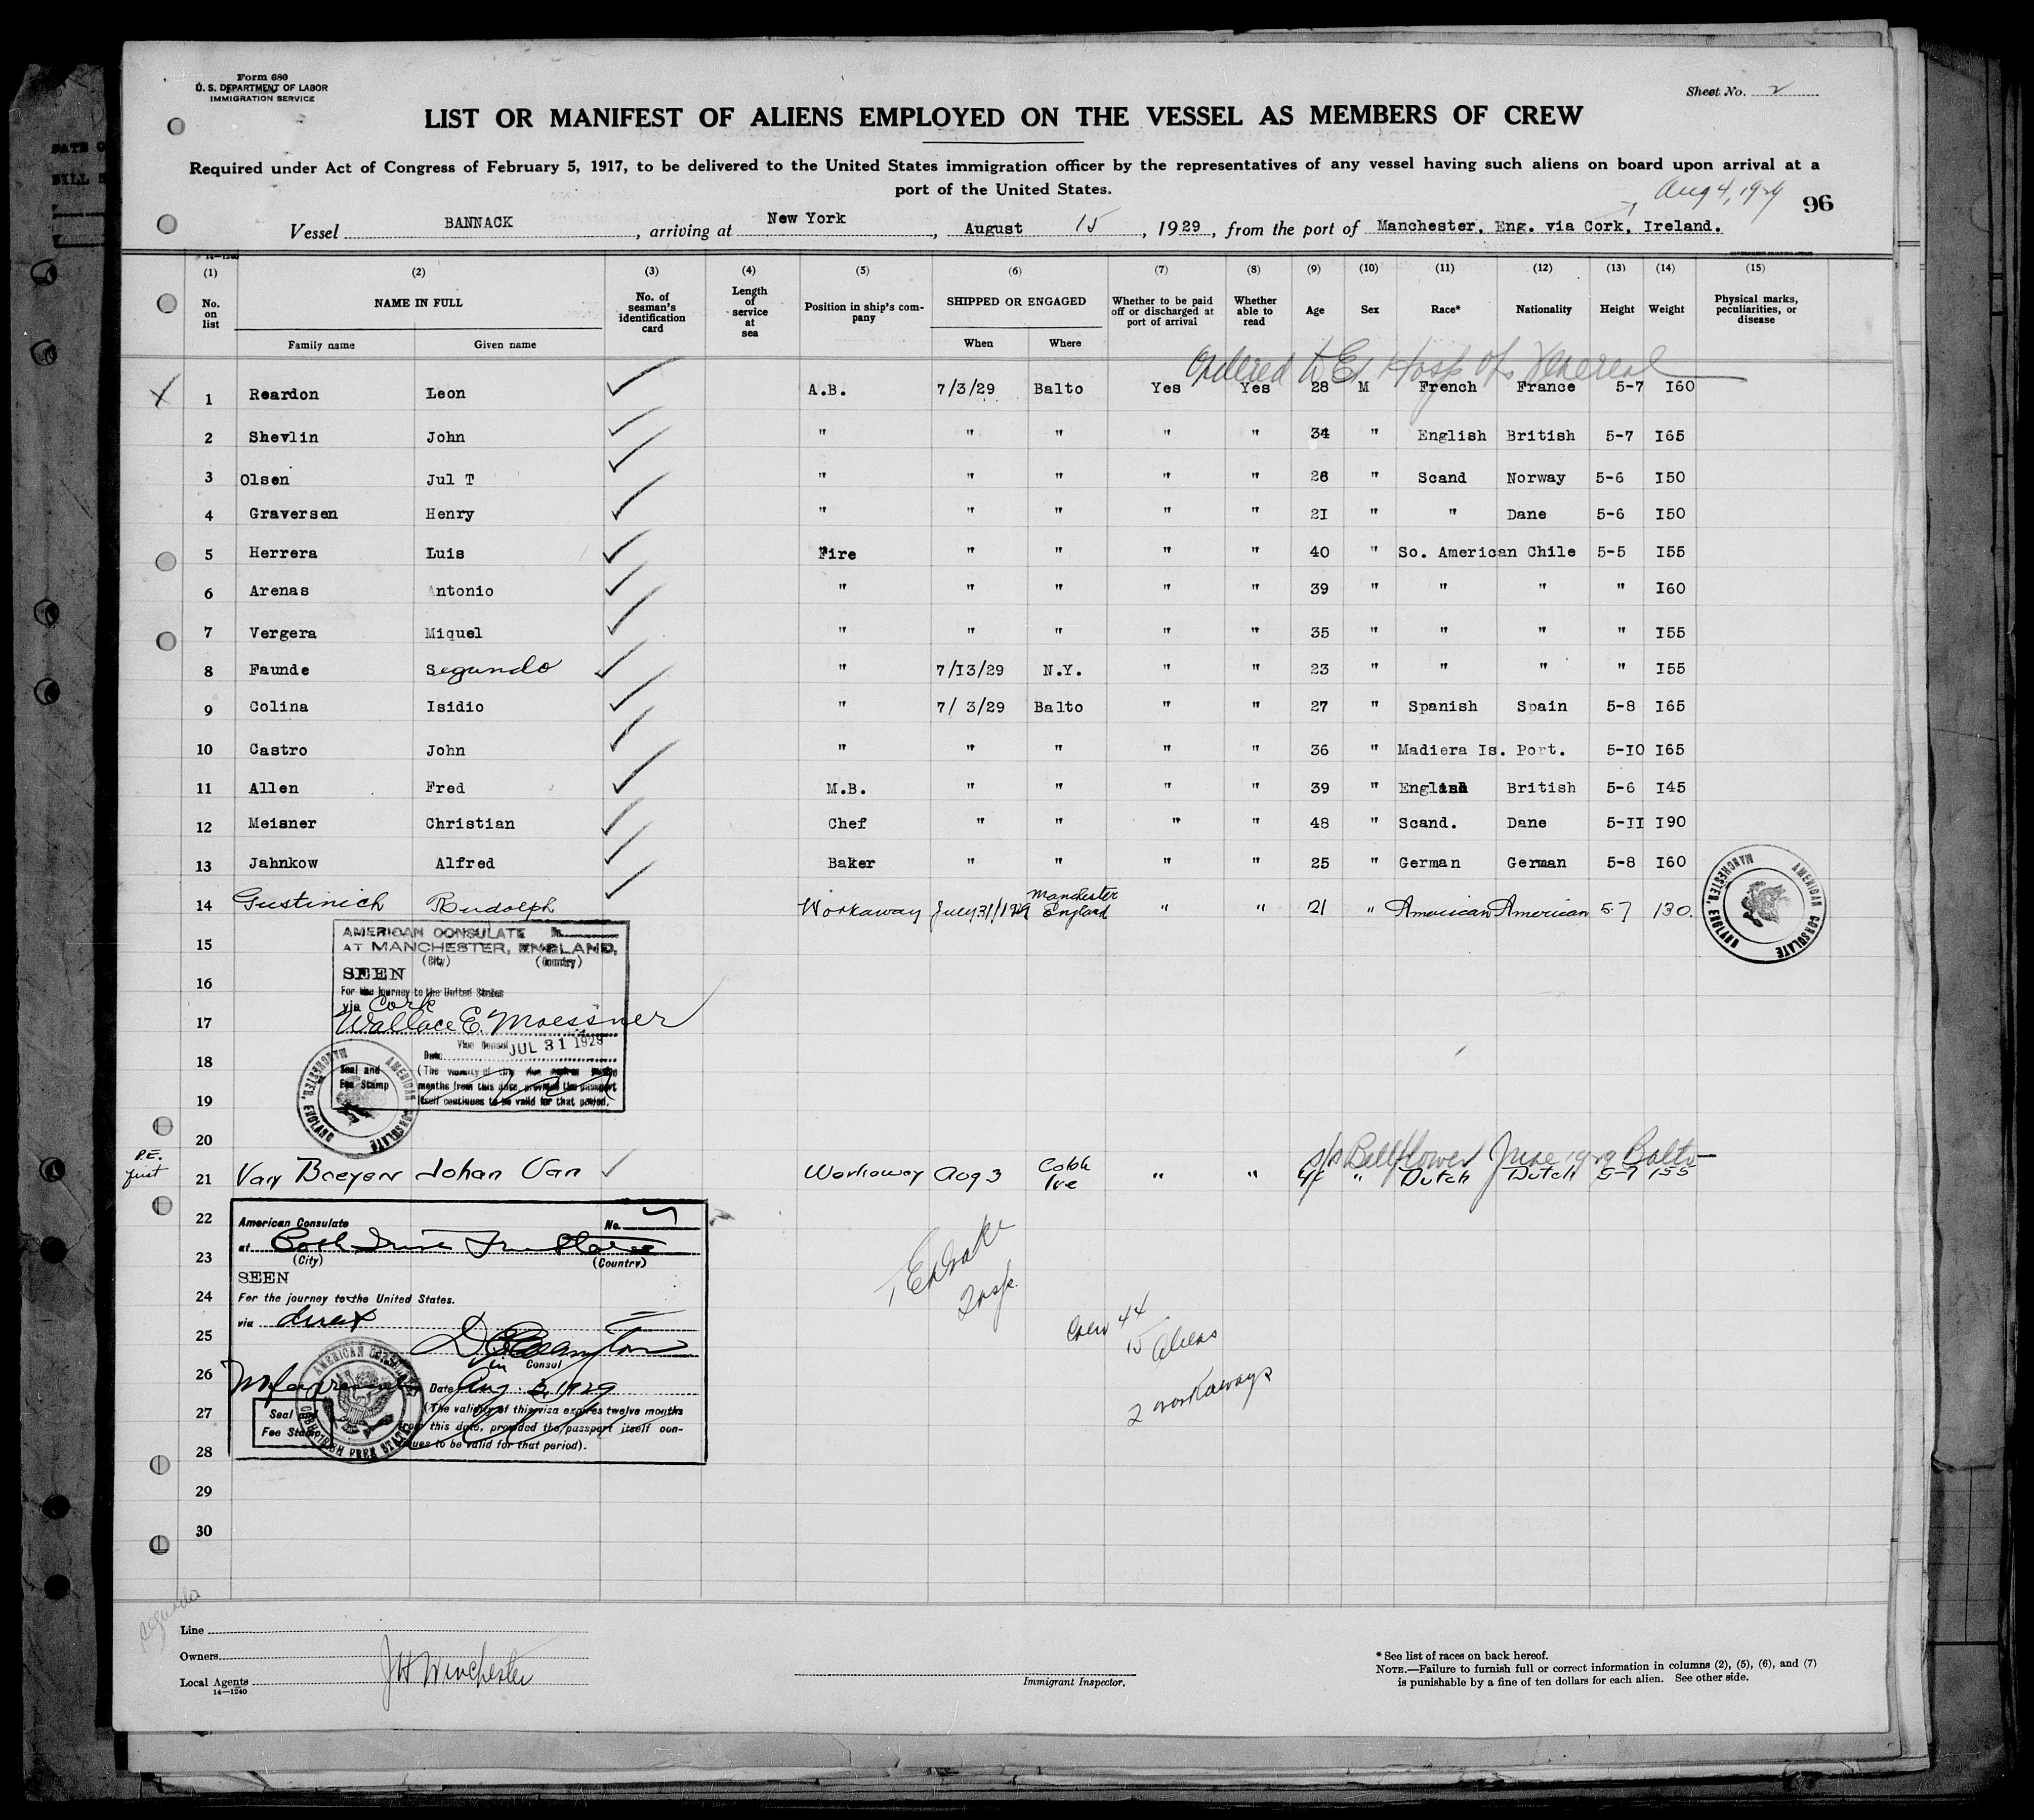 Form 680
U. S. DEPARTMENT OF LABOR
IMMIGRATION SERVICE
Sheet No. 2
LIST OR MANIFEST OF ALIENS EMPLOYED ON THE VESSEL AS MEMBERS OF CREW
Required under Act of Congress of February 5, 1917, to be delivered to the United States immigration officer by the representatives of any vessel having such aliens on board upon arrival at a
port of the United States.
Aug 4, 1929
96
Vessel BANNACK, arriving at New York, August 15, 1929, from the port of Manchester, Eng. via Cork, Ireland.
(1) (2) (3) (4) (5) (6) (7) (8) (9) (10) (11) (12) (13) (14) (15)
No. on list NAME IN FULL Family name Given name No. of seaman's identification card Length of service at sea Position in ship's company SHIPPED OR ENGAGED When Where Whether to be paid off or discharged at port of arrival Whether able to read Age Sex Race* Nationality Height Weight Physical marks, peculiarities, or disease
Ordered to Hosp Venereal
1 Reardon Leon A.B. 7/3/29 Balto Yes Yes 28 M French France 5-7 I60
2 Shevlin John " " " " " 34 " English British 5-7 I65
3 Olsen Jul T " " " " " 28 " Scand Norway 5-6 I50
4 Graversen Henry " " " " " 2I " " Dane 5-6 I50
5 Herrera Luis Fire " " " " 40 " So. American Chile 5-5 I55
6 Arenas Antonio " " " " " 39 " " " " I60
7 Vergera Miquel " " " " " 35 " " " " I55
8 Faunde Segundo " 7/I3/29 N.Y. " " 23 " " " " I55
9 Colina Isidio " 7/ 3/29 Balto " " 27 " Spanish Spain 5-8 I65
10 Castro John " " " " " 36 " Madiera Is. Port. 5-IO I65
11 Allen Fred M.B. " " " " 39 " English British 5-6 I45
12 Meisner Christian Chef " " " " 48 " Scand. Dane 5-II I90
13 Jahnkow Alfred Baker " " " " 25 " German German 5-8 I60
14 Gustinich Rudolph Workaway July 31/1929 Manchester England " " 21 " American American 5-7 130.
AMERICAN CONSULATE MANCHESTER, ENGLAND
15
AMERICAN CONSULATE No.
AT MANCHESTER, ENGLAND,
(City) (Country)
16
SEEN
For the journey to the United States
via Cork
17
Wallace E. Moessner
Vice Consul
Date JUL 31 1929
18
Seal and Fee Stamp
(The validity of this visa expires
months from this date, provided the passport
itself continues to be valid for that period.
AMERICAN CONSULATE MANCHESTER, ENGLAND
19
20
P.E.
first
s/s Bellflower June 1929 Balto
21 Van Boeyen Johan Van Workaway Aug 3 Cobh Ire " " " Dutch Dutch 5-7 155
22
American Consulate No. 7
23
at Cobh Irish Free State
(City) (Country)
SEEN
24
For the journey to the United States.
via direct
25
Consul
26
Date Aug 3, 1929
27
(The validity of this visa expires twelve months
from this date, provided the passport itself con-
tinues to be valid for that period).
Seal and
Fee Stamp
AMERICAN CONSULATE COBH IRISH FREE STATE
28
29
30
Drake
Insp.
Crew 44
15 Aliens
2 workaways
Segundo
Line
Owners
Local Agents JH Winchester
14—1240
Immigrant Inspector.
* See list of races on back hereof.
NOTE.—Failure to furnish full or correct information in columns (2), (5), (6), and (7)
is punishable by a fine of ten dollars for each alien. See other side.